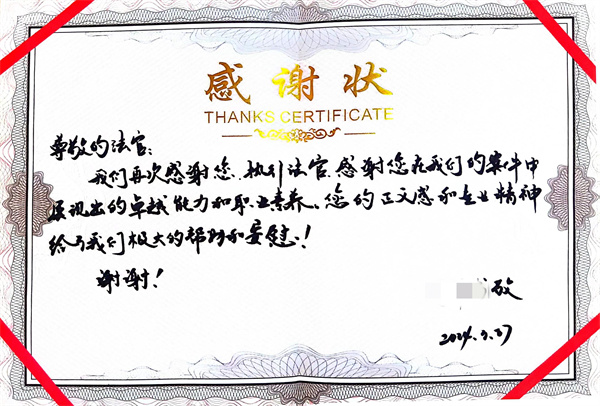 感谢状
THANKS CERTIFICATE
尊敬的法官:
我们再次感谢您.执行法官.感谢您在我们的案件中
展现出的卓越能力和职业素养、您的正义感和专业精神
给了我们极大的帮助和安慰!
谢谢!
敬
2024.3.27